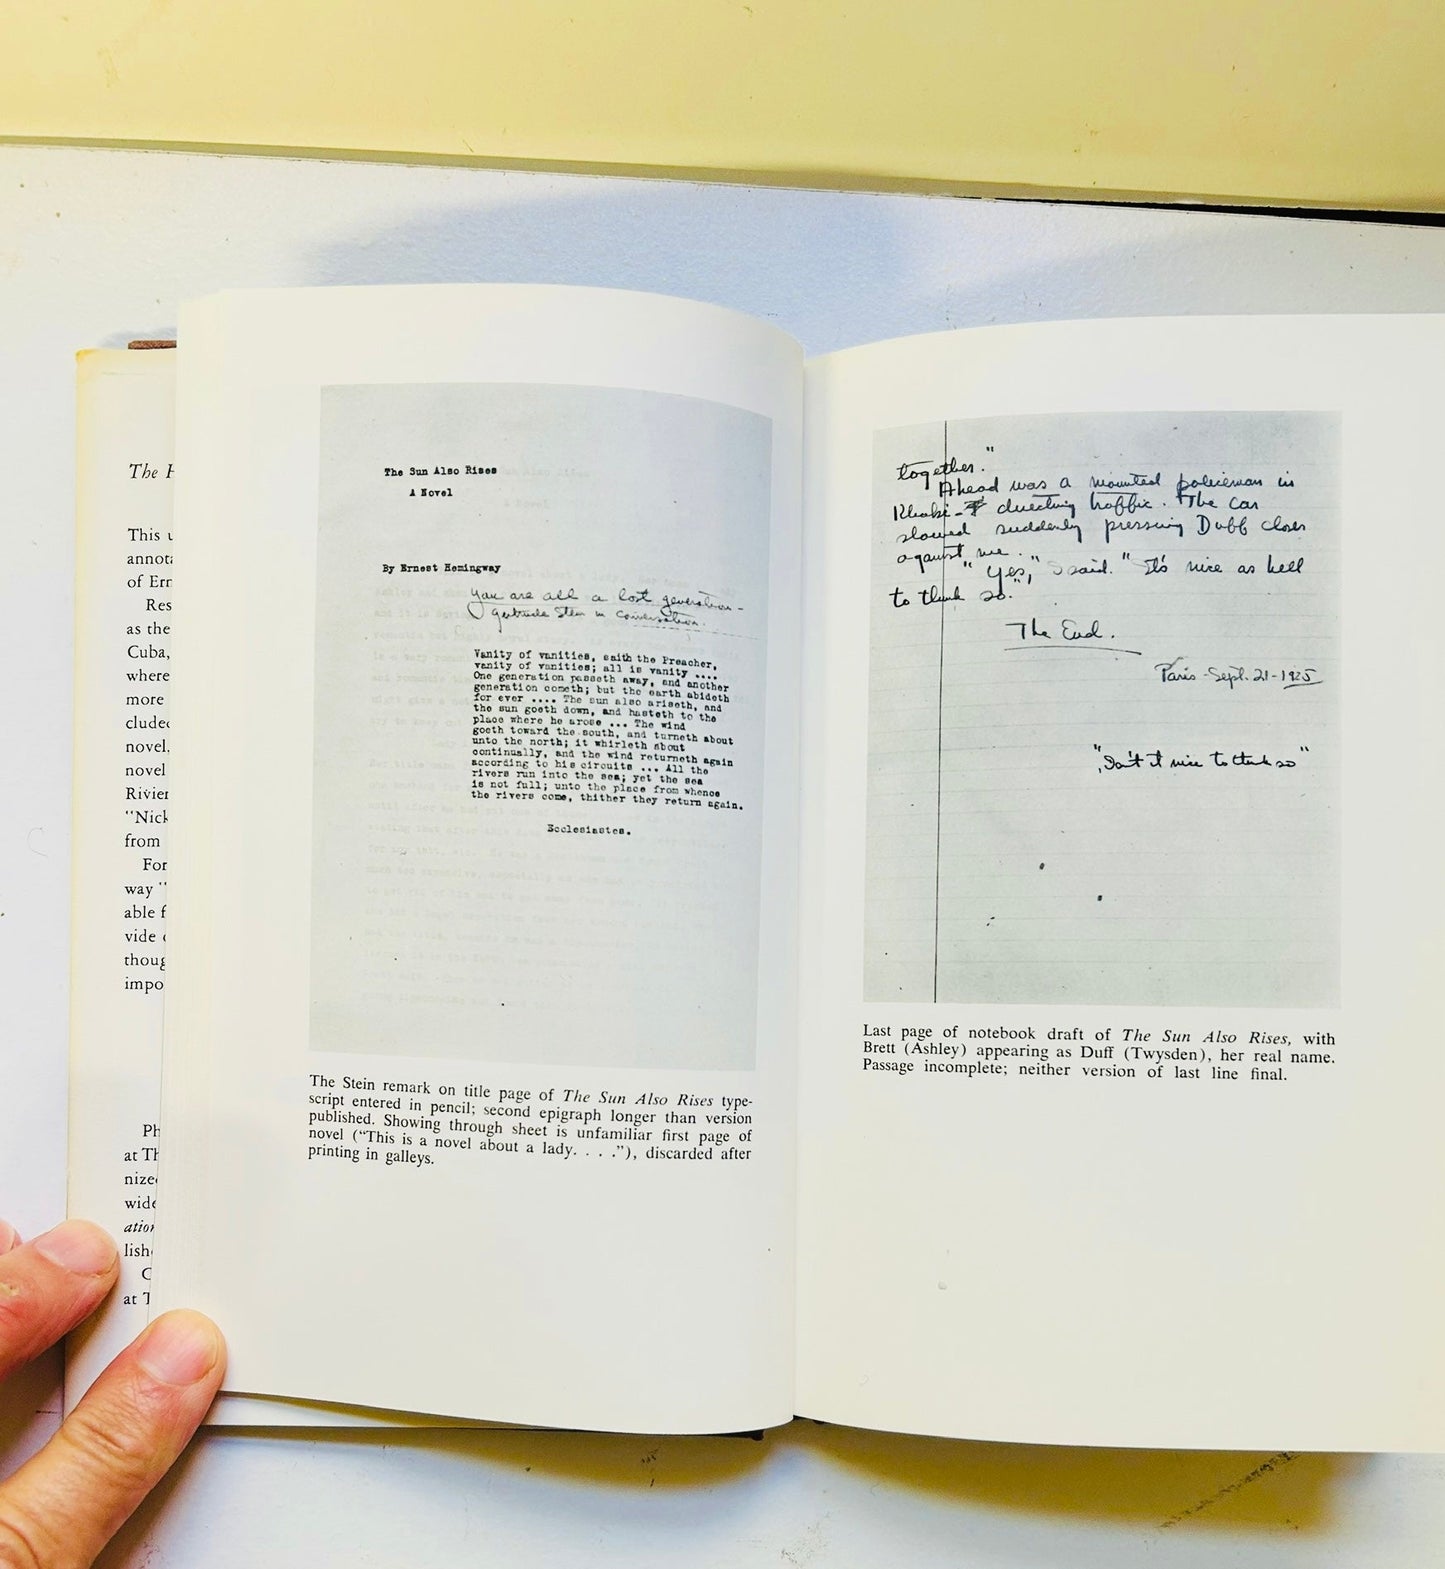 The H
This u
annota
of Ern
Res
as the
Cuba,
where
more
cluded
novel,
novel
Rivier
"Nick
from
For
way "
able f
vide
thoug
impo
Ph
at Th
nized
wide
ation
lish
C
at T
The Sun Also Rises
A Novel
By Ernest Hemingway
You are all a lost generation -
Gertrude Stein in conversation.
Vanity of vanities, saith the Preacher,
vanity of vanities; all is vanity ....
One generation passeth away, and another
generation cometh; but the earth abideth
for ever .... The sun also ariseth, and
the sun goeth down, and hasteth to the
place where he arose ... The wind
goeth toward the south, and turneth about
unto the north; it whirleth about
continually, and the wind returneth again
according to his circuits ... All the
rivers run into the sea; yet the sea
is not full; unto the place from whence
the rivers come, thither they return again.
Ecclesiastes.
The Stein remark on title page of The Sun Also Rises type-
script entered in pencil; second epigraph longer than version
published. Showing through sheet is unfamiliar first page of
novel ("This is a novel about a lady. . . ."), discarded after
printing in galleys.
together."
Ahead was a mounted policeman in
Khaki directing traffic. The car
slowed suddenly pressing Duff closer
against me.
"Yes," I said. "It's nice as hell
to think so."
The End.
Paris - Sept. 21 - 1925
"Isn't it nice to think so"
Last page of notebook draft of The Sun Also Rises, with
Brett (Ashley) appearing as Duff (Twysden), her real name.
Passage incomplete; neither version of last line final.